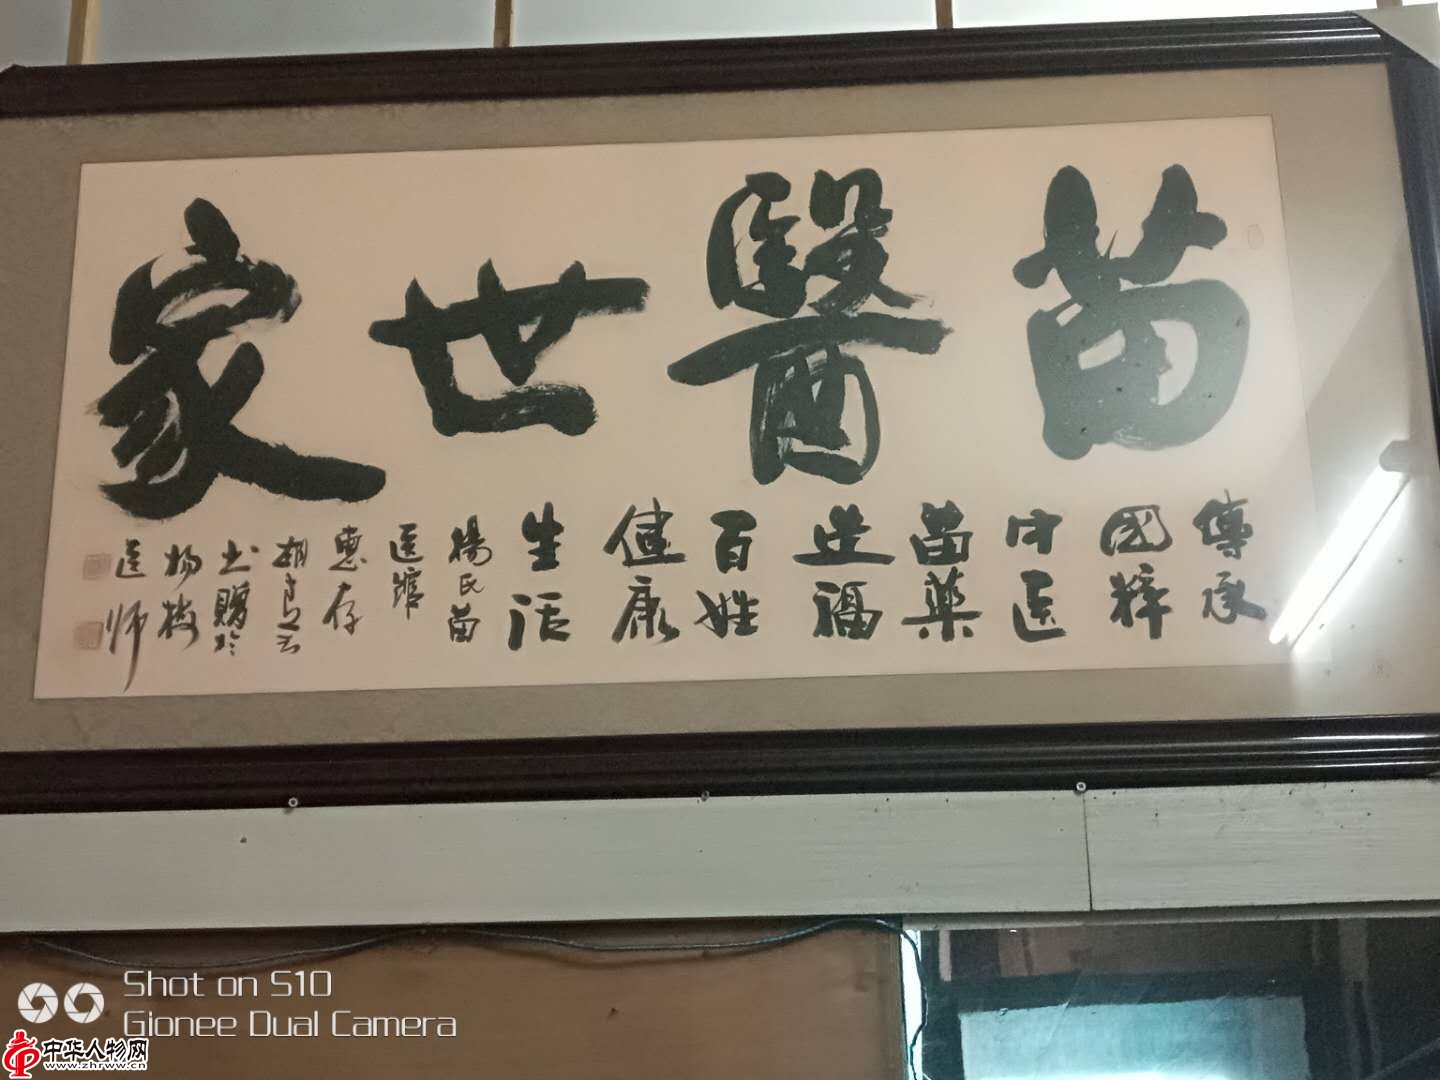 苗醫世家
傳承
國粹
中医
苗藥
造福
百姓
健康
生活
楊氏苗
医馆
惠存
书赠於
杨
医师
Shot on S10
Gionee Dual Camera
中华人物网
www.zhrww.cn